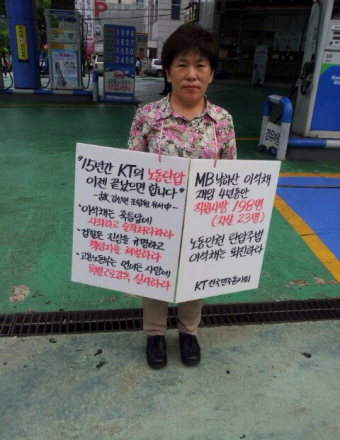 "15년간 KT의 노동탄압
이젠 끝났으면 합니다"
-故 김성현 조합원 유서中-
•이석채는 죽음앞에
사죄하고 순직처리하라
•검찰은 진상을 규명하고
책임자를 처벌하라
•고용노동부는 연이은 사망에
특별근로감독 실시하라
MB낙하산 이석채
재임 4년동안
직원사망 198명
(자살 23명)
노동인권 탄압주범
이석채는 퇴진하라
KT 전국민주동지회
1994